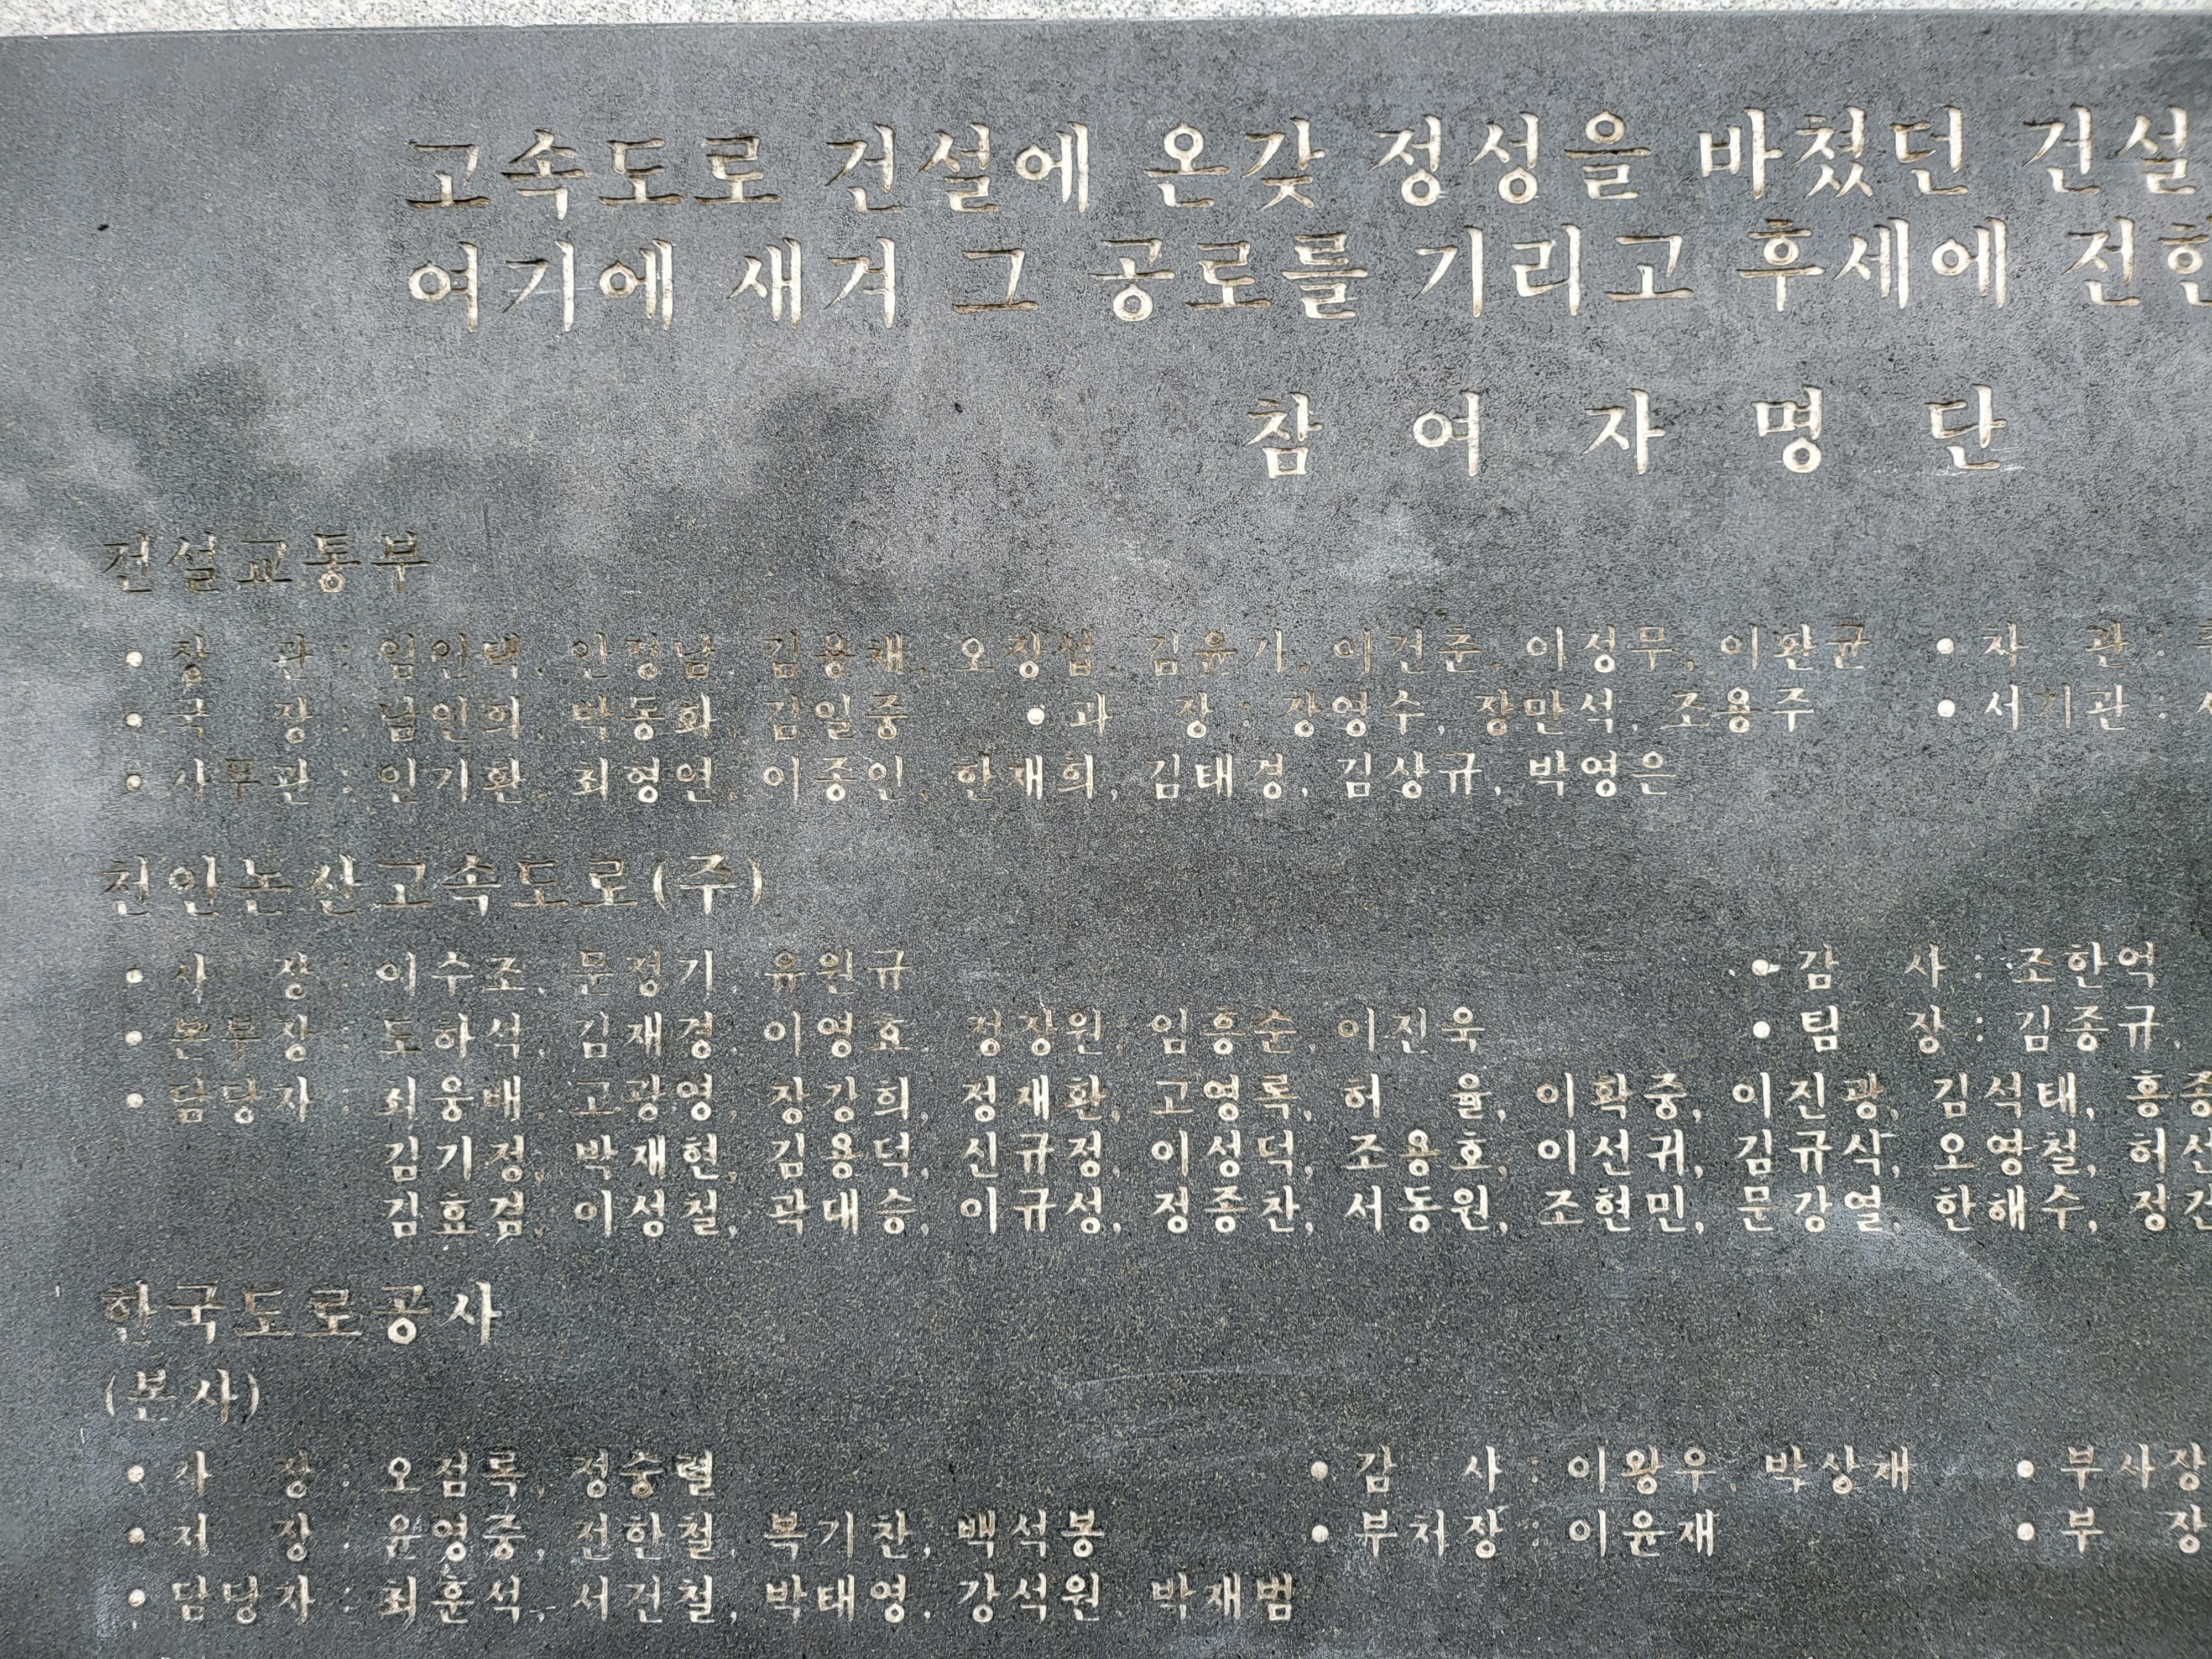 고속도로 건설에 온갖 정성을 바쳤던 건설
여기에 새겨 그 공로를 기리고 후세에 전한
참 여 자 명 단
건설교통부
• 장 관 : 임인택, 안정남, 김용채, 오장섭, 김윤기, 이건춘, 이정무, 이환균 • 차 관 :
• 국 장 : 남인희, 박동화, 김일중 • 과 장 : 강영수, 장만석, 조용주 • 서기관 :
• 사무관 : 인기환, 최형연, 이종인, 한재희, 김태경, 김상규, 박영은
천안논산고속도로(주)
• 사 장 : 이수조, 문정기, 유원규 • 감 사 : 조한억
• 본부장 : 도하석, 김재경, 이영효, 정장원, 임흥순, 이진욱 • 팀 장 : 김종규,
• 담당자 : 최웅배, 고광영, 장강희, 정재환, 고영록, 허 율, 이확중, 이진광, 김석태,
김기정, 박재현, 김용덕, 신규정, 이성덕, 조용호, 이선귀, 김규식, 오영철,
김효겸, 이성철, 곽대승, 이규성, 정종찬, 서동원, 조현민, 문강열, 한해수,
한국도로공사
(본사)
• 사 장 : 오점록, 정숭렬 • 감 사 : 이왕우, 박상재 • 부사장
• 처 장 : 윤영중, 전한철, 복기찬, 백석봉 • 부처장 : 이윤재 • 부 장
• 담당자 : 최훈석, 서건철, 박태영, 강석원, 박재범